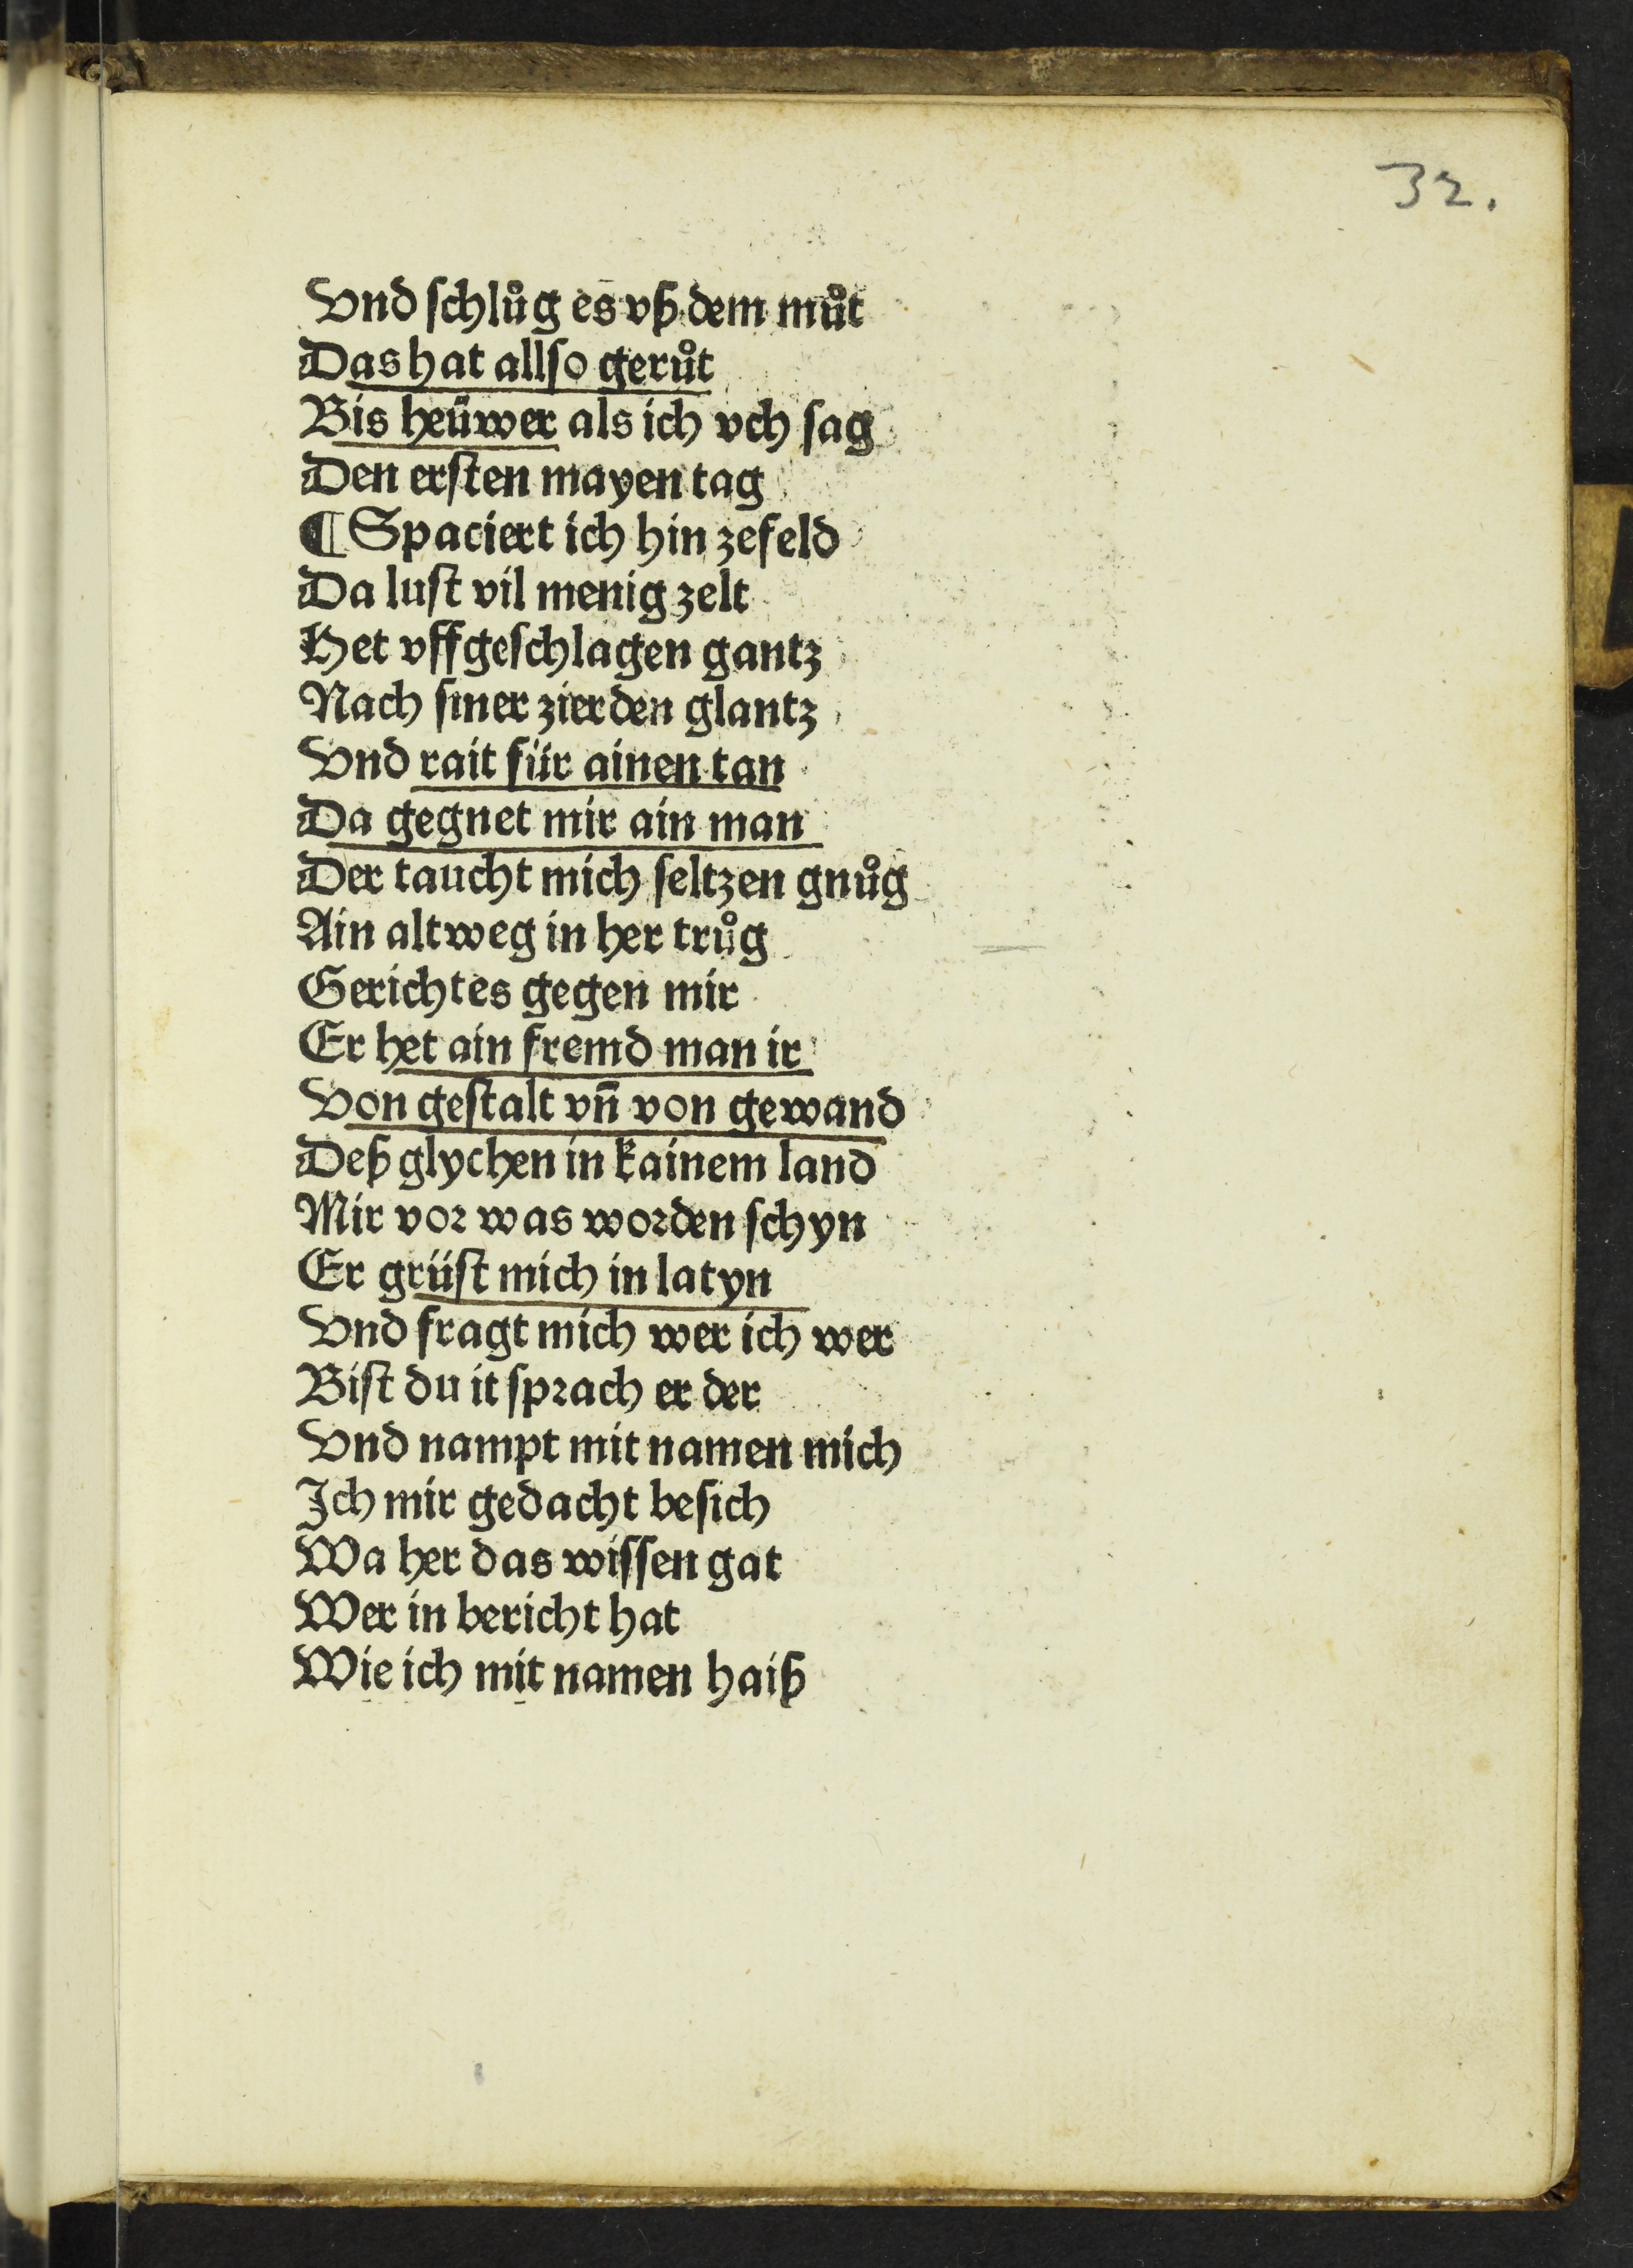 32.
Vnd ſchlůg es vß dem můt
Das hat allſo gerůt
Bis heüwer als ich vch ſag
Den erſten mayen tag
¶ Spaciert ich hin zefeld
Da luſt vil menig zelt
Het vffgeſchlagen gantz
Nach ſiner zierden glantz
Vnd rait für ainen tan
Da gegnet mir ain man
Der taucht mich ſeltzen gnůg
Ain altweg in her trůg
Gerichtes gegen mir
Er het ain fremd man ir
Von geſtalt vn̄ von gewand
Deß glychen in kainem land
Mir vor was worden ſchyn
Er grüſt mich in latyn
Vnd fragt mich wer ich wer
Biſt du it ſprach er der
Vnd nampt mit namen mich
Ich mir gedacht beſich
Wa her das wiſſen gat
Wer in bericht hat
Wie ich mit namen haiß